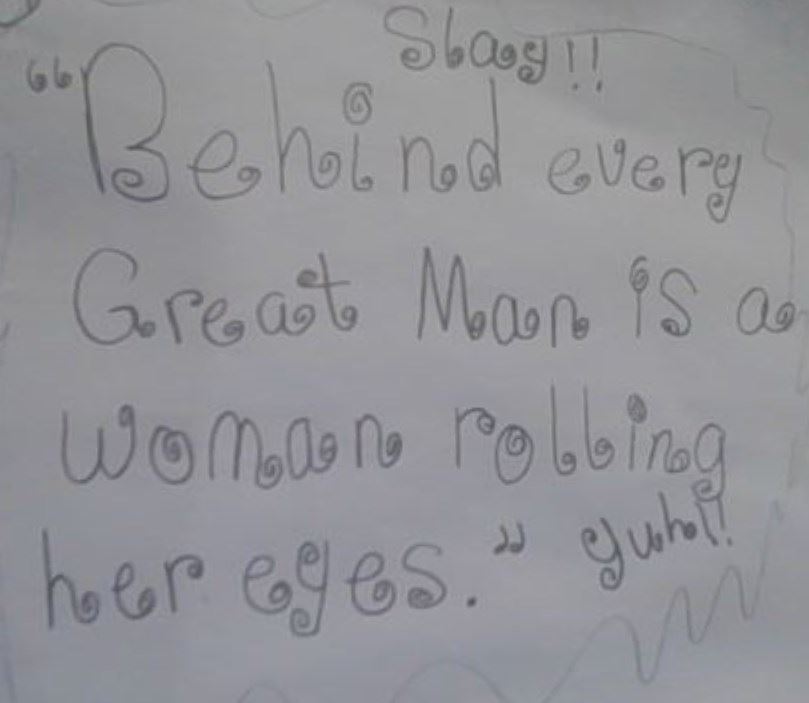 Slay!!
“Behind every
Great Man is a
woman rolling
her eyes.” yuh!!